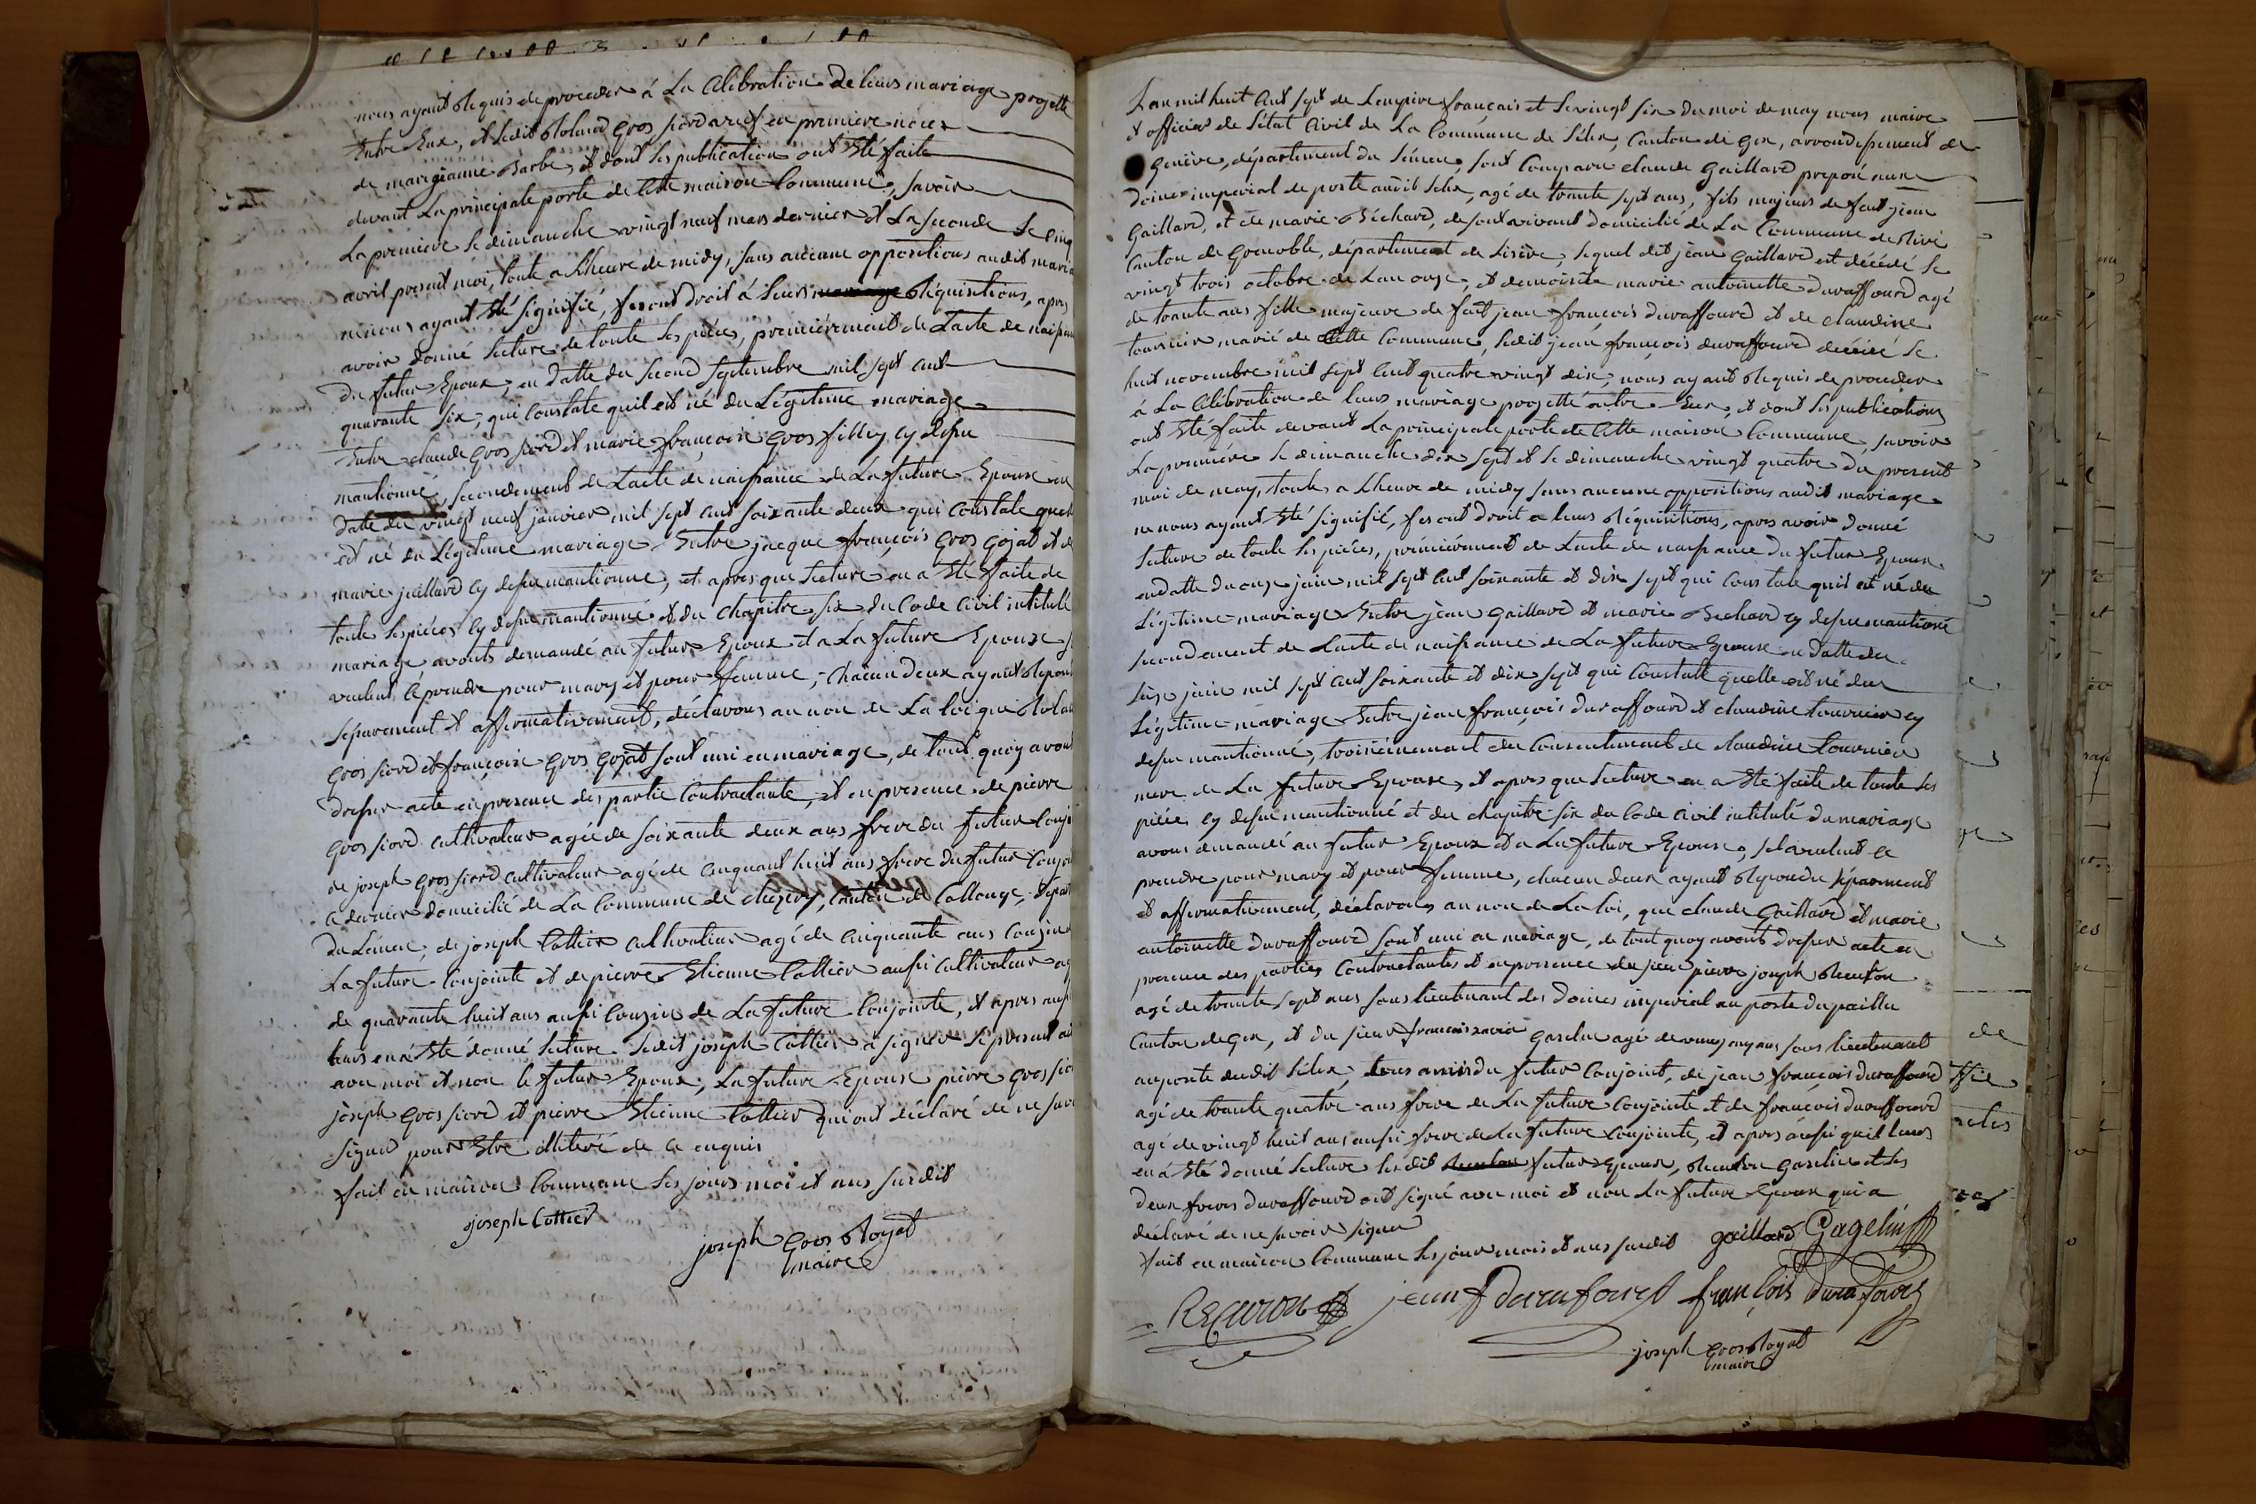 nous ayant requis de proceder à La Célébration de leurs mariage projetté
Entre Eux, et ledit Roland Gros fiord veuf en premiere noces
de marigeanne Barbe, et dont les publication ont Eté faite
devant La principale porte de Cette maison Commune, savoir
La premiere le dimanche vingt neuf mars dernier et La seconde le cinq
avril present moi, toute a Lheure de midy, sans aucune oppositions audit maria
ne nous ayant Eté signifié, fesant droit à leurs requisitions, apres
avoir donné lecture de toute les pièces, premièrement de Lacte de naissan
du futur Epoux, en datte du second septembre mil sept cent
quarante six, qui Constate quil est né du Légitime mariage
Entre claude Gros fiord et marie françoise Gros filley cy dessu
mantionné, secondement de Lacte de naissance de La future Epouse en
datte du vingt neuf janvier mil sept cent soixante deux qui Constate quel
est né du Légitime mariage Entre jacque françois Gros Gojat et de
marie juillard cy dessu mantionné, et apres que lecture en a Eté faite de
toute les pièces cy dessu mantionné et du chapitre six du Code Civil intitulé
mariage avonts demandé au futur Epoux et a La future Epouse s
veulent ce prendre pour mary et pour femme, chacun deux ayant repon
séparement et affirmativement, déclarons au non de La loi que Rolan
Gros fiord et françoise Gros Gojat sont uni en mariage, de tout quoy avon
dresser acte en presence des partie Contractante, et en presence de pierre
Gros fiord cultivateur agé de soixante deux ans frere du futur Conjoi
de joseph Gros fiord cultivateur agé de cinquant huit ans frere du futur Conjoi
Ce dernier domicilié de La Commune de chezery, Canton de Collonge, Depar
du Léman, de joseph Cottier cultivateur agé de cinquante ans Cousin
La future Conjointe et de pierre Etienne Cottier aussi cultivateur ag
de quarante huit ans aussi Cousin de La future Conjointe, et apres aussi
leurs en à Eté donné lecture ledit joseph Cottier à signé le present
avec moi et non le futur Epoux, La future Epouse pierre Gros fior
joseph Gros fiord et pierre Etienne Cottier qui ont déclaré de ne savo
signer pour Etre illitéré de ce enquis
fait en maison Commune les jours moi et ans susdit
joseph Cottier
joseph Gros Royat
maire
Lan mil huit Cent sept de Lempire français et le vingt six du moi de may nous maire
et officier de Létat Civil de La Commune de Lélex, Canton de Gex, arrondissement de
Genève, département du Léman, sont Comparu claude Gaillard preposé aux
doines imperial de poste audit Lélex, agé de trante sept ans, fils majeurs de feut jean
Gaillard, et de marie Béchard, de sont vivant domicilié de La Commune de Rivi
Canton de Grenoble, département de Lisère, lequel dit jean Gaillard est décédé le
vingt trois octobre de Lan onze, et demoiselle marie antoinette duraffourd agé
de trante ans fille majeure de feut jean françois duraffourd et de claudine
tournier marié de Cette Commune, ledit jean françois duraffourd décédé le
huit novembre mil sept Cent quatre vingt dix, nous ayant requis de proceder
à La Célébration de leurs mariage projetté entre Eux, et dont les publications
ont Eté faite devant La principale porte de Cette maison Commune, savoir
La première le dimanche dix sept et le dimanche vingt quatre du present
moi de may, toute a Lheure de midy sans aucune oppositions audit mariage
ne nous ayant Eté signifié, fesant droit a leurs réquisitions, apres avoir donné
lecture de toute les pièces, prémièrement de Lacte de naissance du futur Epoux
en datte du onze juin mil sept cent soixante et dix sept qui Constate quil est né du
Légitime mariage Entre jean Gaillard et marie Bechard cy dessu mantioné
secondement de Lacte de naissance de La future Epouse en datte du
seize juin mil sept cent soixante et dix sept qui Constate quelle est né du
Légitime mariage Entre jean françois duraffourd et claudine tournier cy
dessu mantionné, troisièmement du Consentement de claudine tournier
mere de La future Epouse, et apres que lecture en a Eté faite de toute les
pièces cy dessu mantionné et du chapitre six du Code Civil intitulé du mariage
avons démandé au futur Epoux et a La future Epouse, sils veulent ce
prendre pour mary et pour femme, chacun deux ayant repondu séparement
et affirmativement, déclarons au non de La loi, que claude Gaillard et marie
antoinette duraffourd sont uni en mariage, de tout quoy avonts dresser acte en
presence des parties Contractantes et en presence de jean pierre joseph
agé de trante sept ans sous lieutenant des doines imperial au poste du paillu
Canton de Gex, et du sieur francois xavié agé de sous lieutenant
au poste dudit Lélex, tous amis du futur Conjoint, de jean françois duraffourd
agé de trante quatre ans frere de La future Conjointe et de françois duraffourd
agé de vingt huit ans aussi frere de La future Conjointe, et apres aussi quil leurs
en à Eté donné lecture lesdit futur Epoux, et les
deux freres duraffourd ont signé avec moi et non La future Epouse qui a
déclaré de ne savoir signer
fait en maison Commune les jour mois et ans susdit gaillard Gagelin
jean f durafourd françois durafourd
joseph Gros Royat
maire